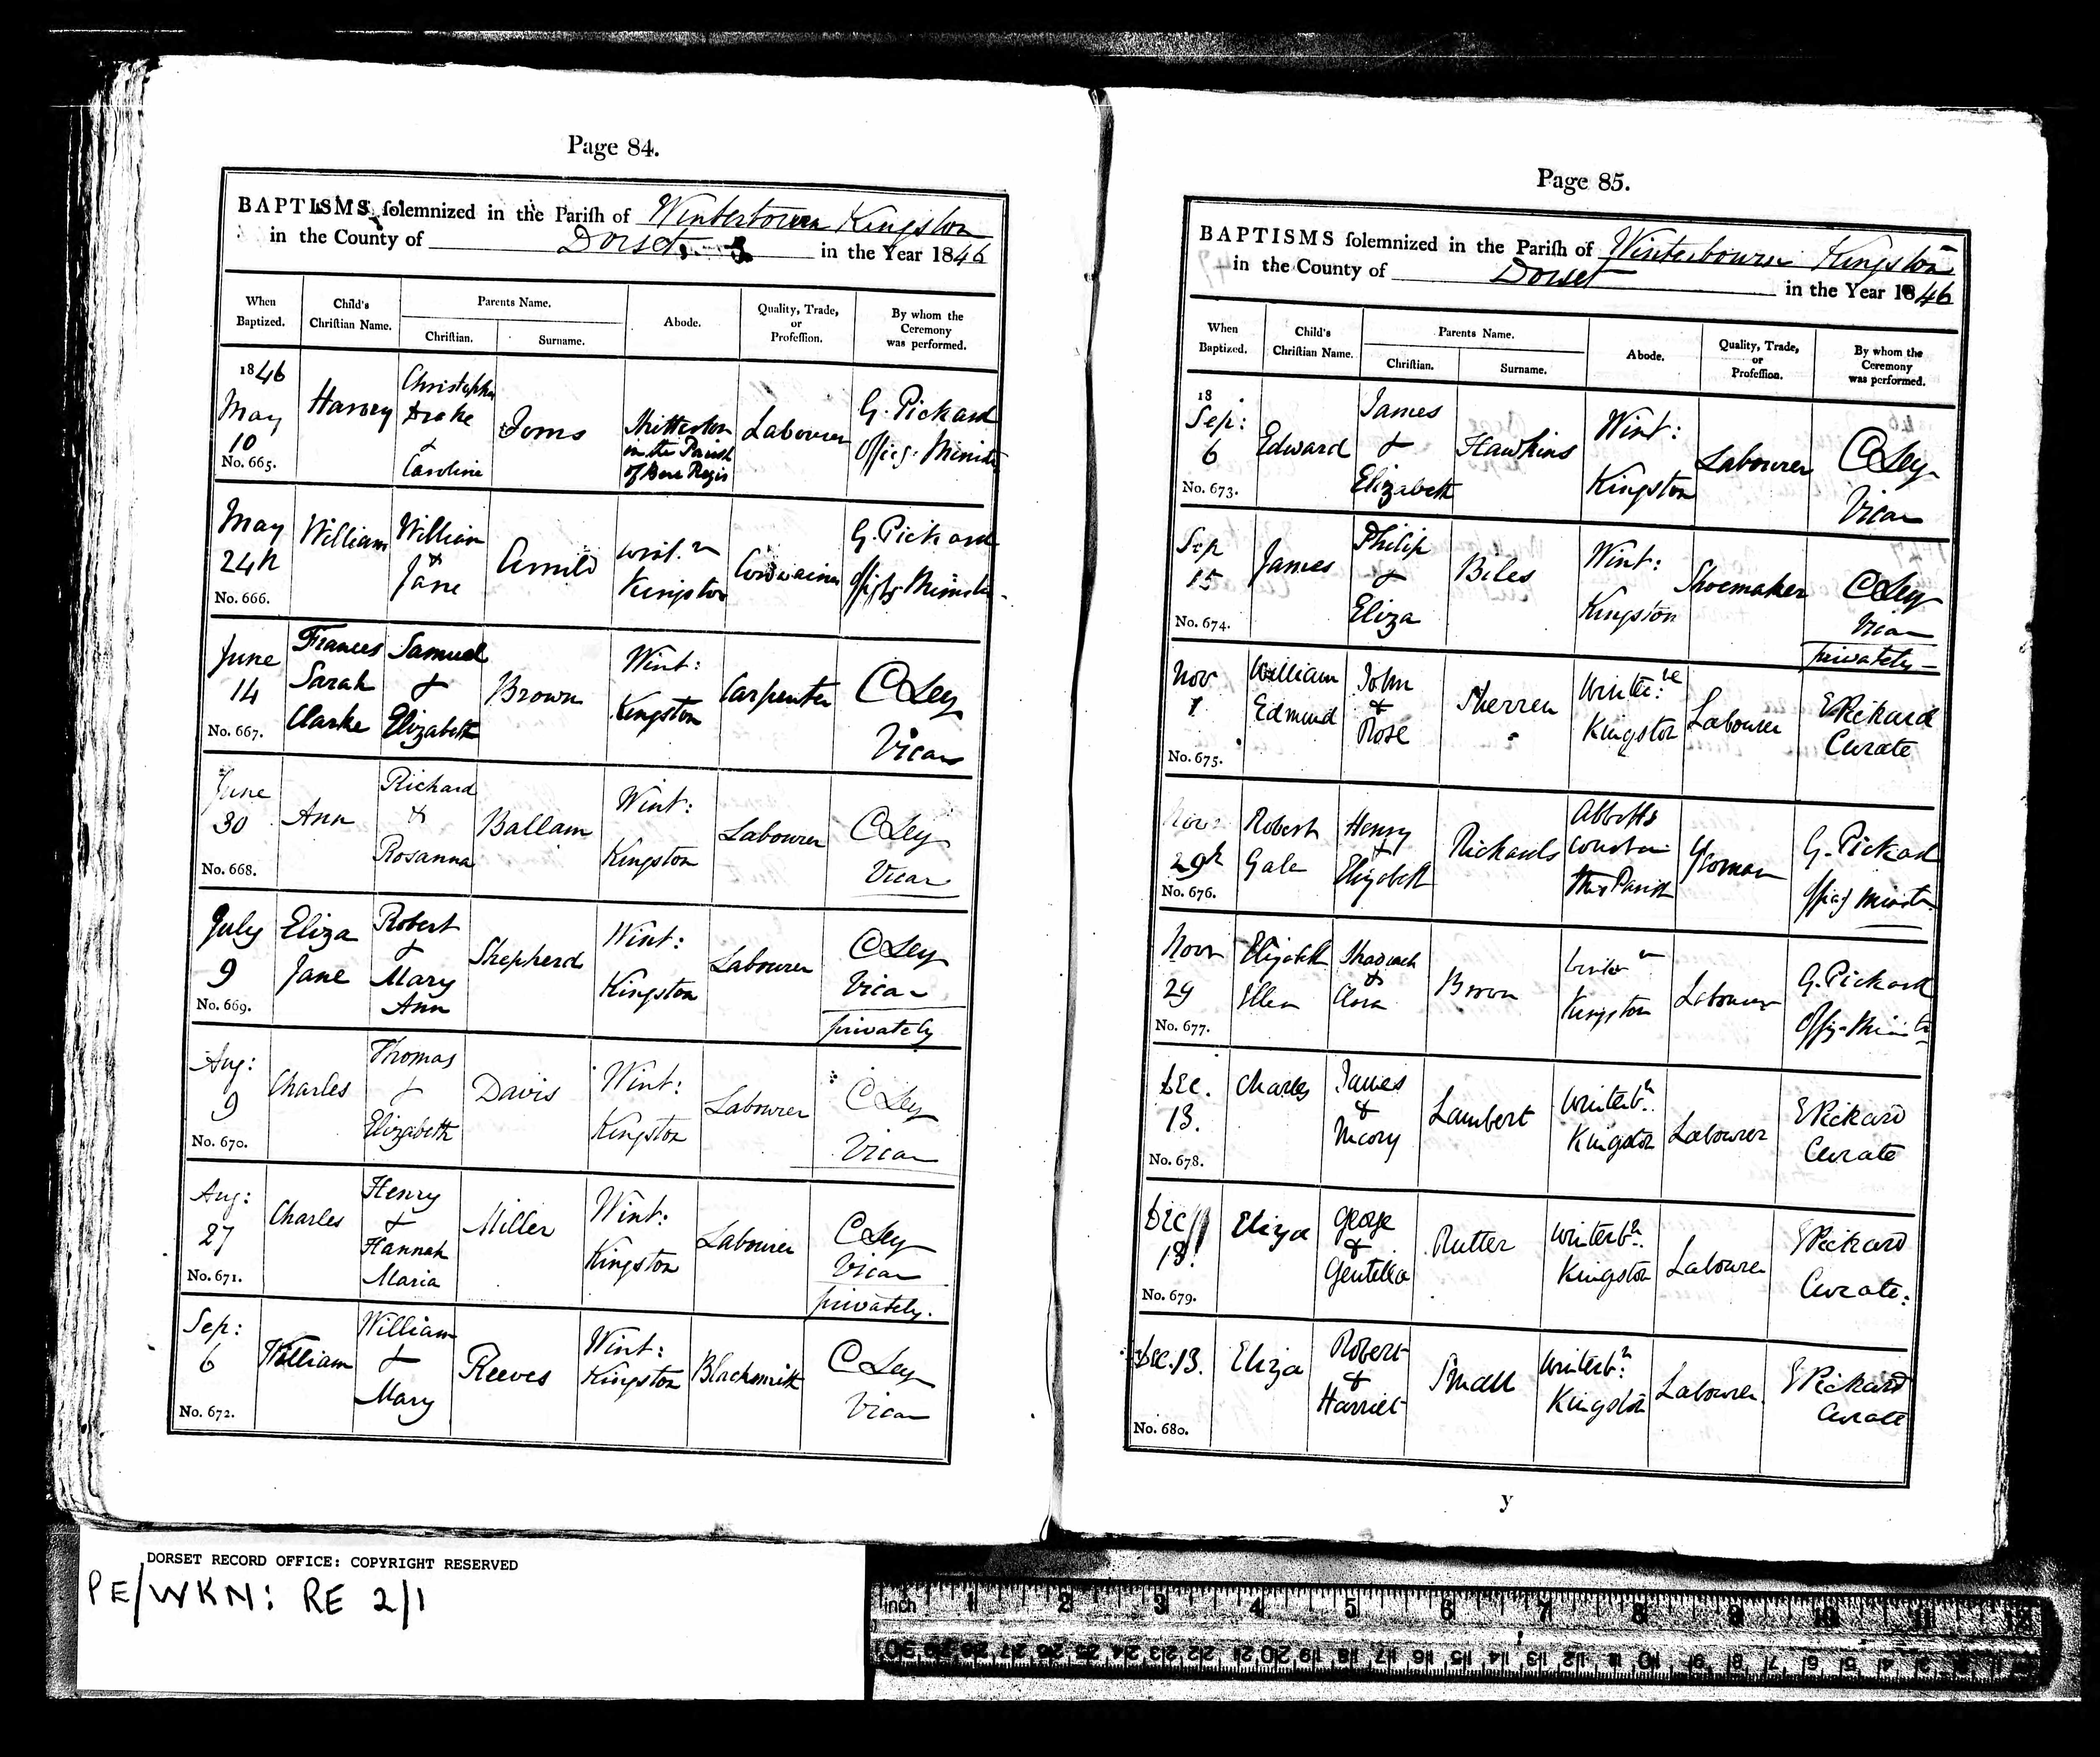 Page 84.
BAPTISMS solemnized in the Parish of Winterbourn Kingston
in the County of Dorset in the Year 1846
When Baptized. Child's Christian Name. Parents Name. Abode. Quality, Trade, or Profession. By whom the Ceremony was performed.
Christian. Surname.
1846 May 10 No. 665. Harvey Christopher Drake & Caroline in the Parish of Bere Regis Labourer G. Pickard Offics: Minister
May 24th No. 666. William William & Jane Arnold Wint:n Kingston Cordwainer G. Pickard Offig Minister
June 14 No. 667. Frances Sarah Clarke Samuel & Elizabeth Brown Wint: Kingston Carpenter C Ley Vicar
June 30 No. 668. Ann Richard & Rosanna Ballam Wint: Kingston Labourer C Ley Vicar
July 9 No. 669. Eliza Jane Robert & Mary Ann Shepherd Wint: Kingston Labourer C Ley Vicar privately
Aug: 9 No. 670. Charles Thomas & Elizabeth Davis Wint: Kingston Labourer C Ley Vicar
Aug: 27 No. 671. Charles Henry & Hannah Maria Miller Wint: Kingston Labourer C Ley Vicar privately.
Sep: 6 No. 672. William William & Mary Reeves Wint: Kingston Blacksmith C Ley Vicar
Page 85.
BAPTISMS solemnized in the Parish of Winterbourn Kingston
in the County of Dorset in the Year 1846
When Baptized. Child's Christian Name. Parents Name. Abode. Quality, Trade, or Profession. By whom the Ceremony was performed.
Christian. Surname.
18 Sep: 6 No. 673. Edward James & Elizabeth Hawkins Wint: Kingston Labourer C Ley Vicar
Sep 15 No. 674. James Philip & Eliza Biles Wint: Kingston Shoemaker C Ley Vicar privately
Nov 1 No. 675. William Edmund John & Rose Sherren Winter:ne Kingston Labourer E Pickard Curate
Nov: 29th No. 676. Robert Gale Henry & Elizabeth Richards Abbotts this Parish Yeoman G. Pickard Offig Minister
Novr 29 No. 677. Elizabeth Ellen Shadrach & Clara Brown Winter n Kingston Labourer G. Pickard Offig. Minister
Dec. 13. No. 678. Charles James & Mary Lambert Winterbn: Kingston Labourer E Pickard Curate
Dec 13. No. 679. Eliza George & Gentilla Rutter Winterbn: Kingston Labourer E Pickard Curate:
Dec. 13. No. 680. Eliza Robert & Harriet Small Winterbn: Kingston Labourer E Pickard Curate
y
DORSET RECORD OFFICE: COPYRIGHT RESERVED
PE/WKN: RE 2/1
inch 1 2 3 4 5 6 7 8 9 10 11 12